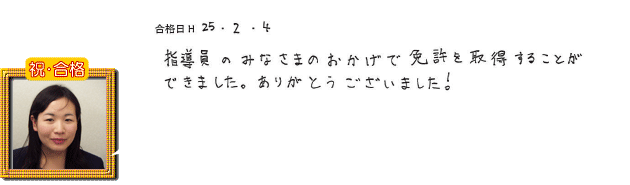 合格日 H 25・2・4
祝・合格
指導員のみなさまのおかげで免許を取得することが
できました。ありがとうございました!